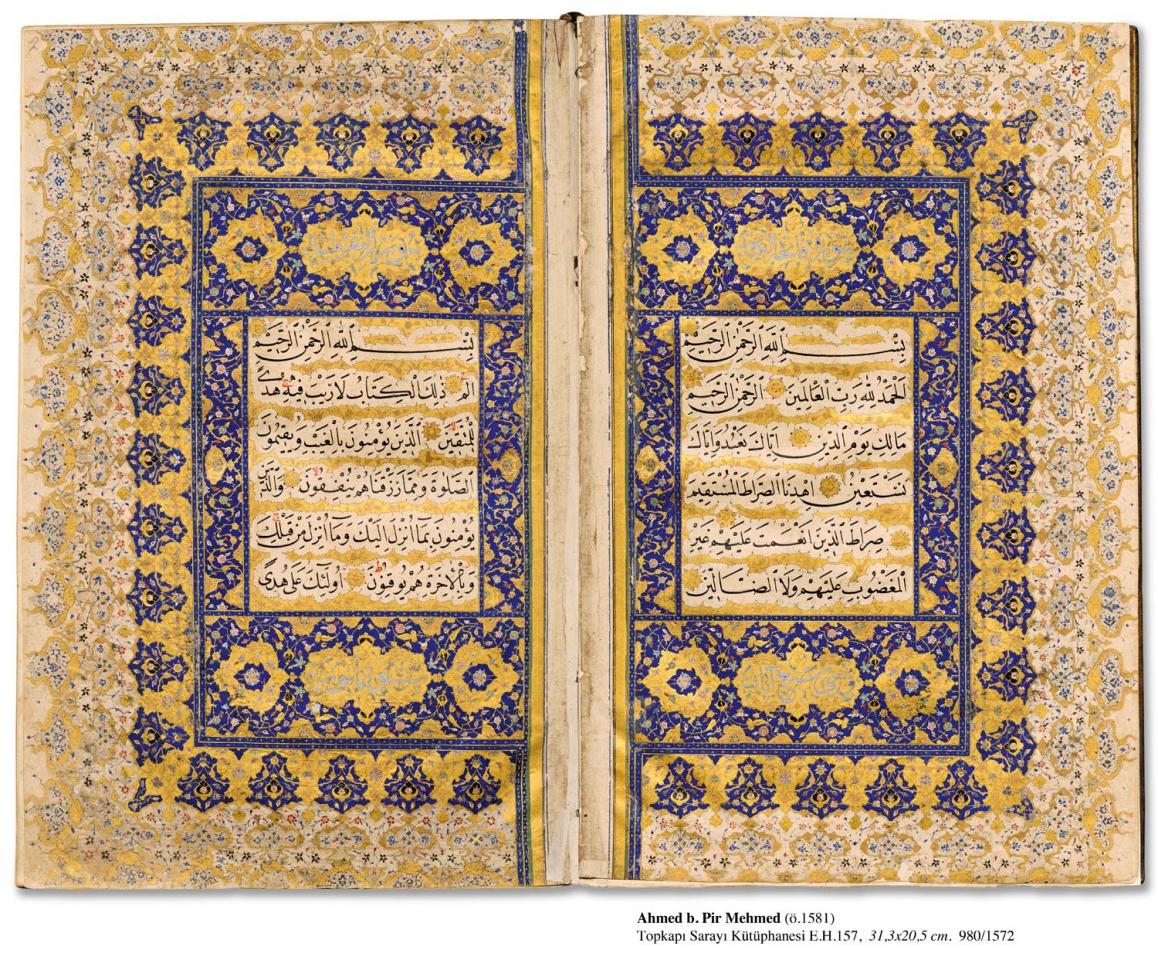 بسم الله الرحمن الرحيم
الحمد لله رب العالمين الرحمن الرحيم
مالك يوم الدين اياك نعبد واياك
نستعين اهدنا الصراط المستقيم
صراط الذين انعمت عليهم غير
المغضوب عليهم ولا الضالين
وهي سبع آيات
بسم الله الرحمن الرحيم
الم ذلك الكتاب لا ريب فيه هدى
للمتقين الذين يؤمنون بالغيب ويقيمون
الصلوة ومما رزقناهم ينفقون والذين
يؤمنون بما انزل اليك وما انزل من قبلك
وبالآخرة هم يوقنون اولئك على هدى
Ahmed b. Pir Mehmed (ö.1581)
Topkapı Sarayı Kütüphanesi E.H.157, 31,3x20,5 cm. 980/1572